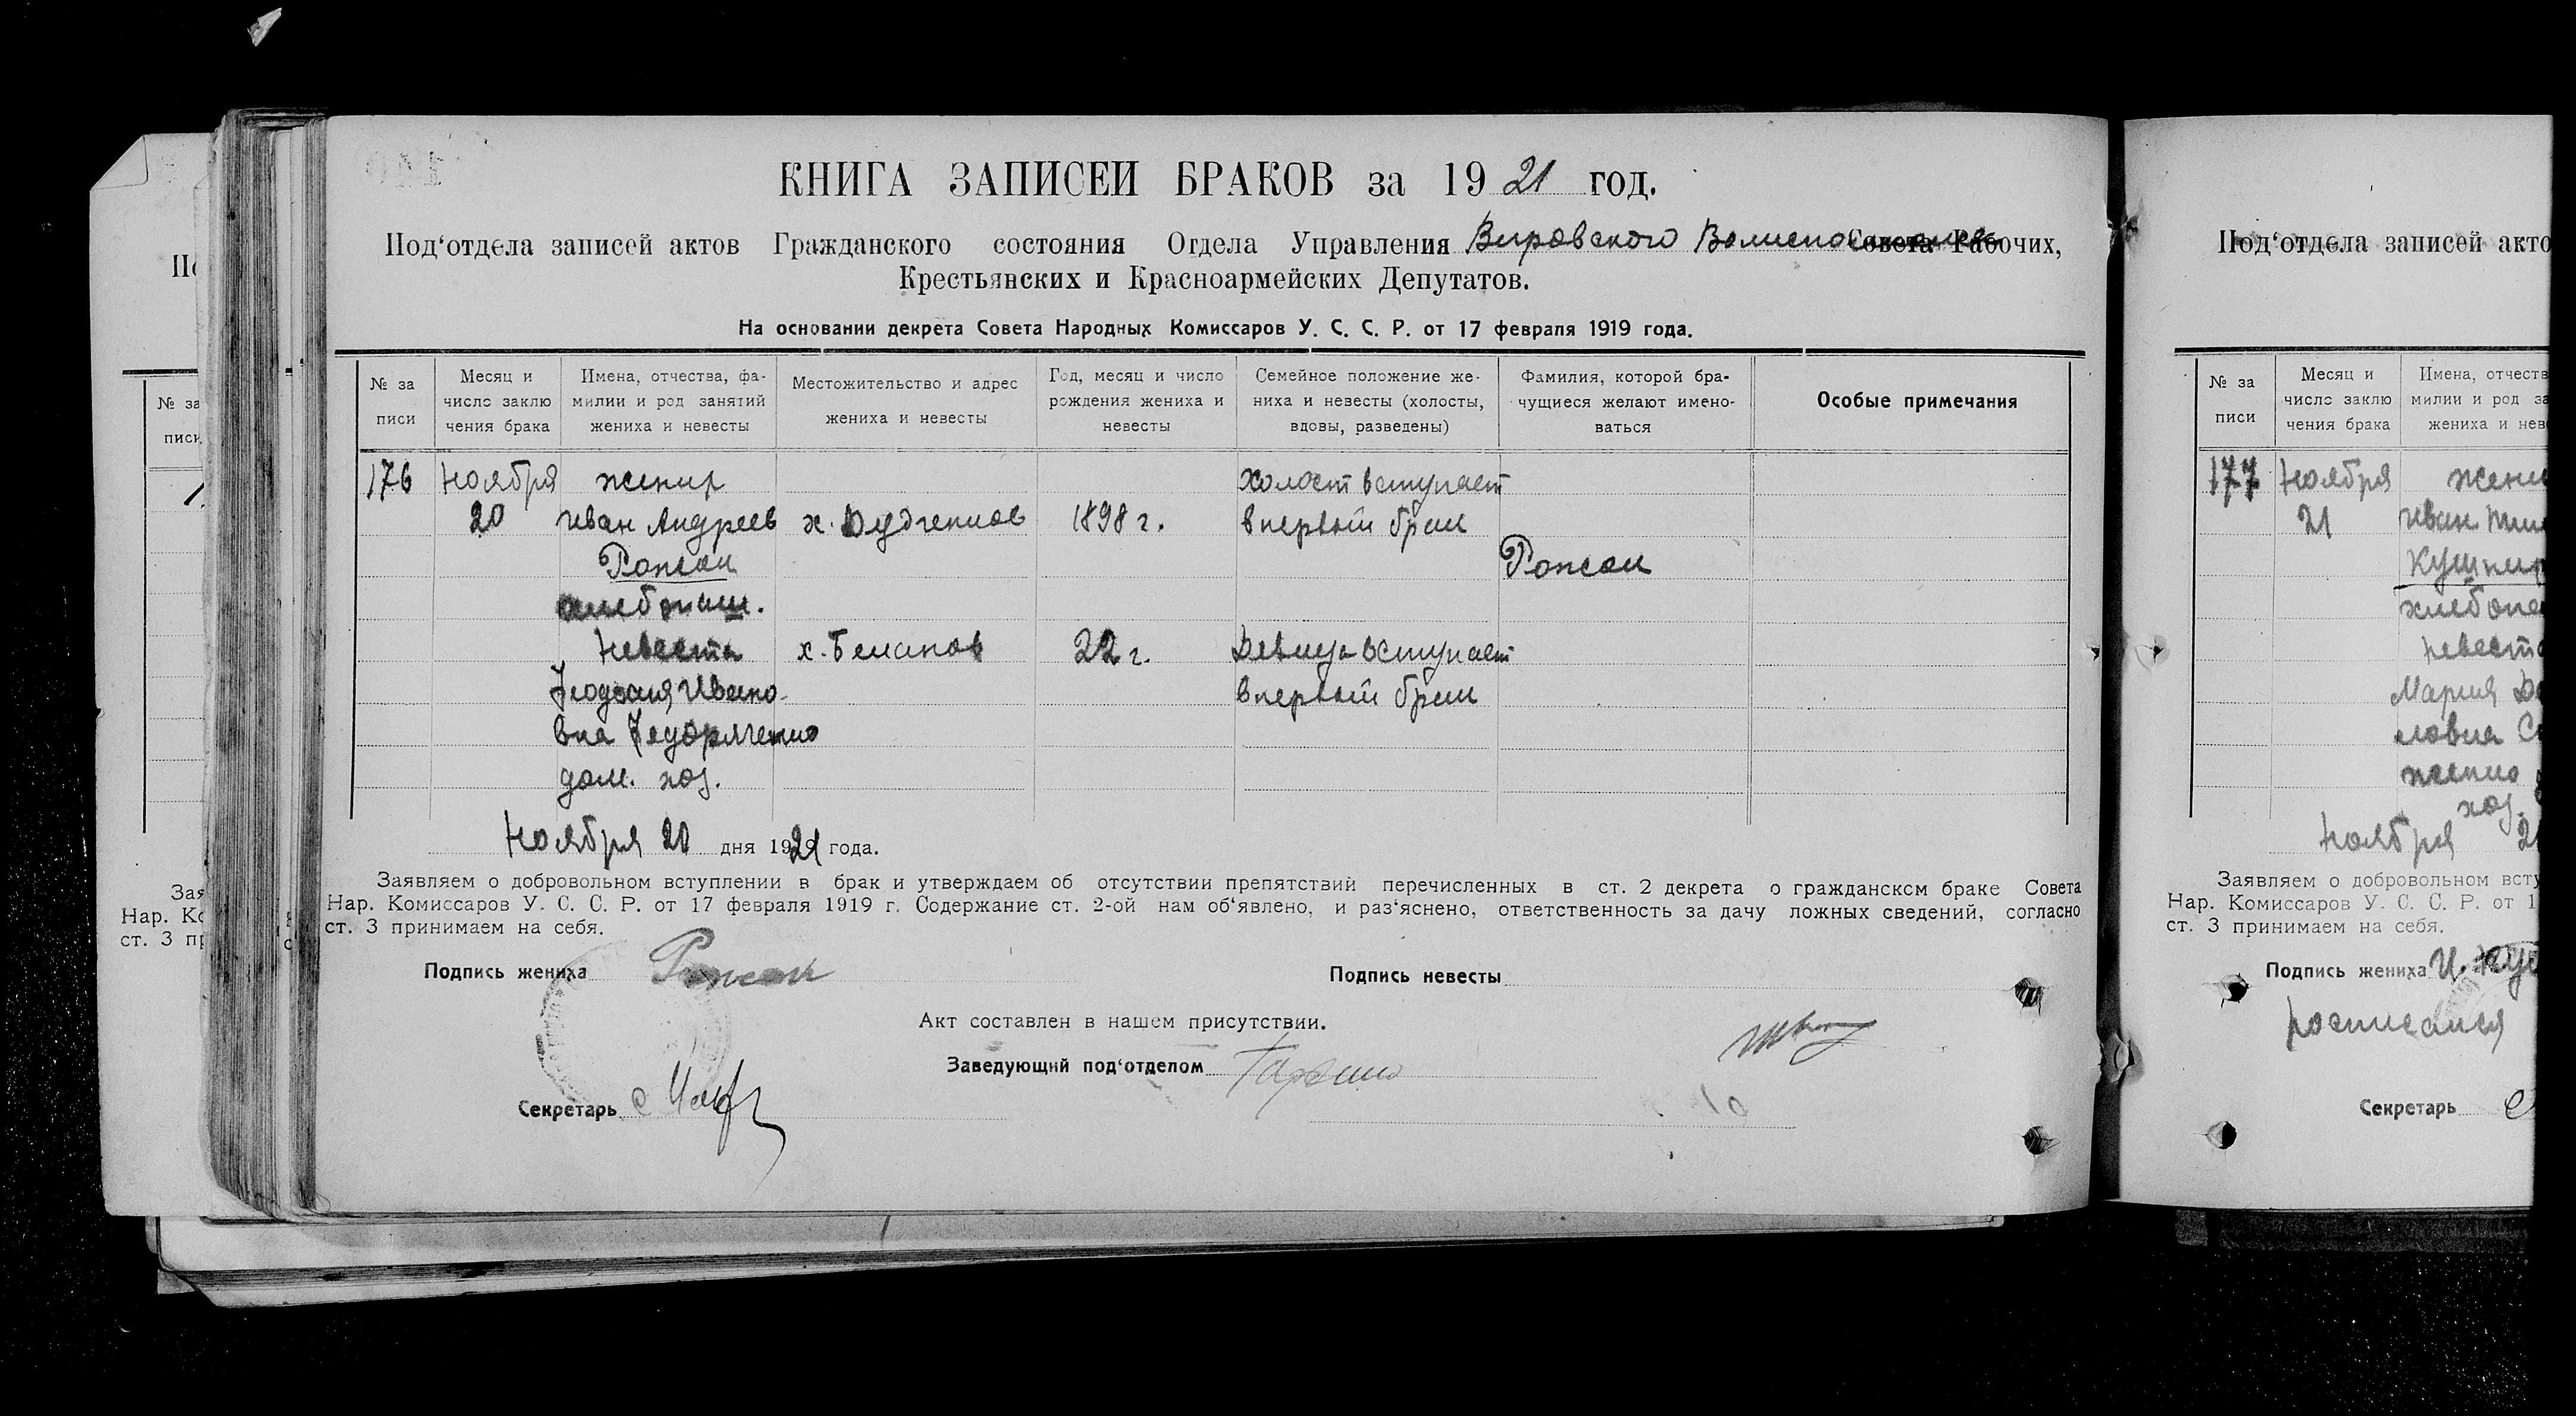 КНИГА ЗАПИСЕЙ БРАКОВ за 1921 год.
Под‘отдела записей актов Гражданского состояния Отдела Управления Вировского Волисполкома Совета Рабочих,
Крестьянских и Красноармейских Депутатов.
На основании декрета Совета Народных Комиссаров У. С. С. Р. от 17 февраля 1919 года.
№ за
писи
Месяц и
число заклю
чения брака
Имена, отчества, фа-
милии и род занятий
жениха и невесты
Местожительство и адрес
жениха и невесты
Год, месяц и число
рождения жениха и
невесты
Семейное положение же-
ниха и невесты (холосты,
вдовы, разведены)
Фамилия, которой бра-
чущиеся желают имено-
ваться
Особые примечания
176 Ноября жених холост вступает
20 Иван Андреев х. 1898 г. в первый брак
Рожок Рожок
хлебопаш.
Невеста х. 22 г. Девица вступает
Ивано- в первый брак
вна Федорященко
дом. хоз.
Ноября 20 дня 1921 года.
Заявляем о добровольном вступлении в брак и утверждаем об отсутствии препятствий перечисленных в ст. 2 декрета о гражданском браке Совета
Нар. Комиссаров У. С. С. Р. от 17 февраля 1919 г. Содержание ст. 2-ой нам об‘явлено, и раз‘яснено, ответственность за дачу ложных сведений, согласно
ст. 3 принимаем на себя.
Подпись жениха Рожок Подпись невесты
Акт составлен в нашем присутствии.
Заведующий под‘отделом
Секретарь
Под‘отдела записей акто
№ за
писи
Месяц и
число заклю
чения брака
Имена, отчеств
милии и род за
жениха и нев
177 Ноября жени
21 Иван
Кушнир
хлебопа
Невеста
Мария
хоз.
Ноября 2
Заявляем о добровольном всту
Нар. Комиссаров У. С. С. Р. от 1
ст. 3 принимаем на себя.
Подпись жениха И.
росписался
Секретарь
№ за
писи
Зая
Нар. Ко
ст. 3 пр